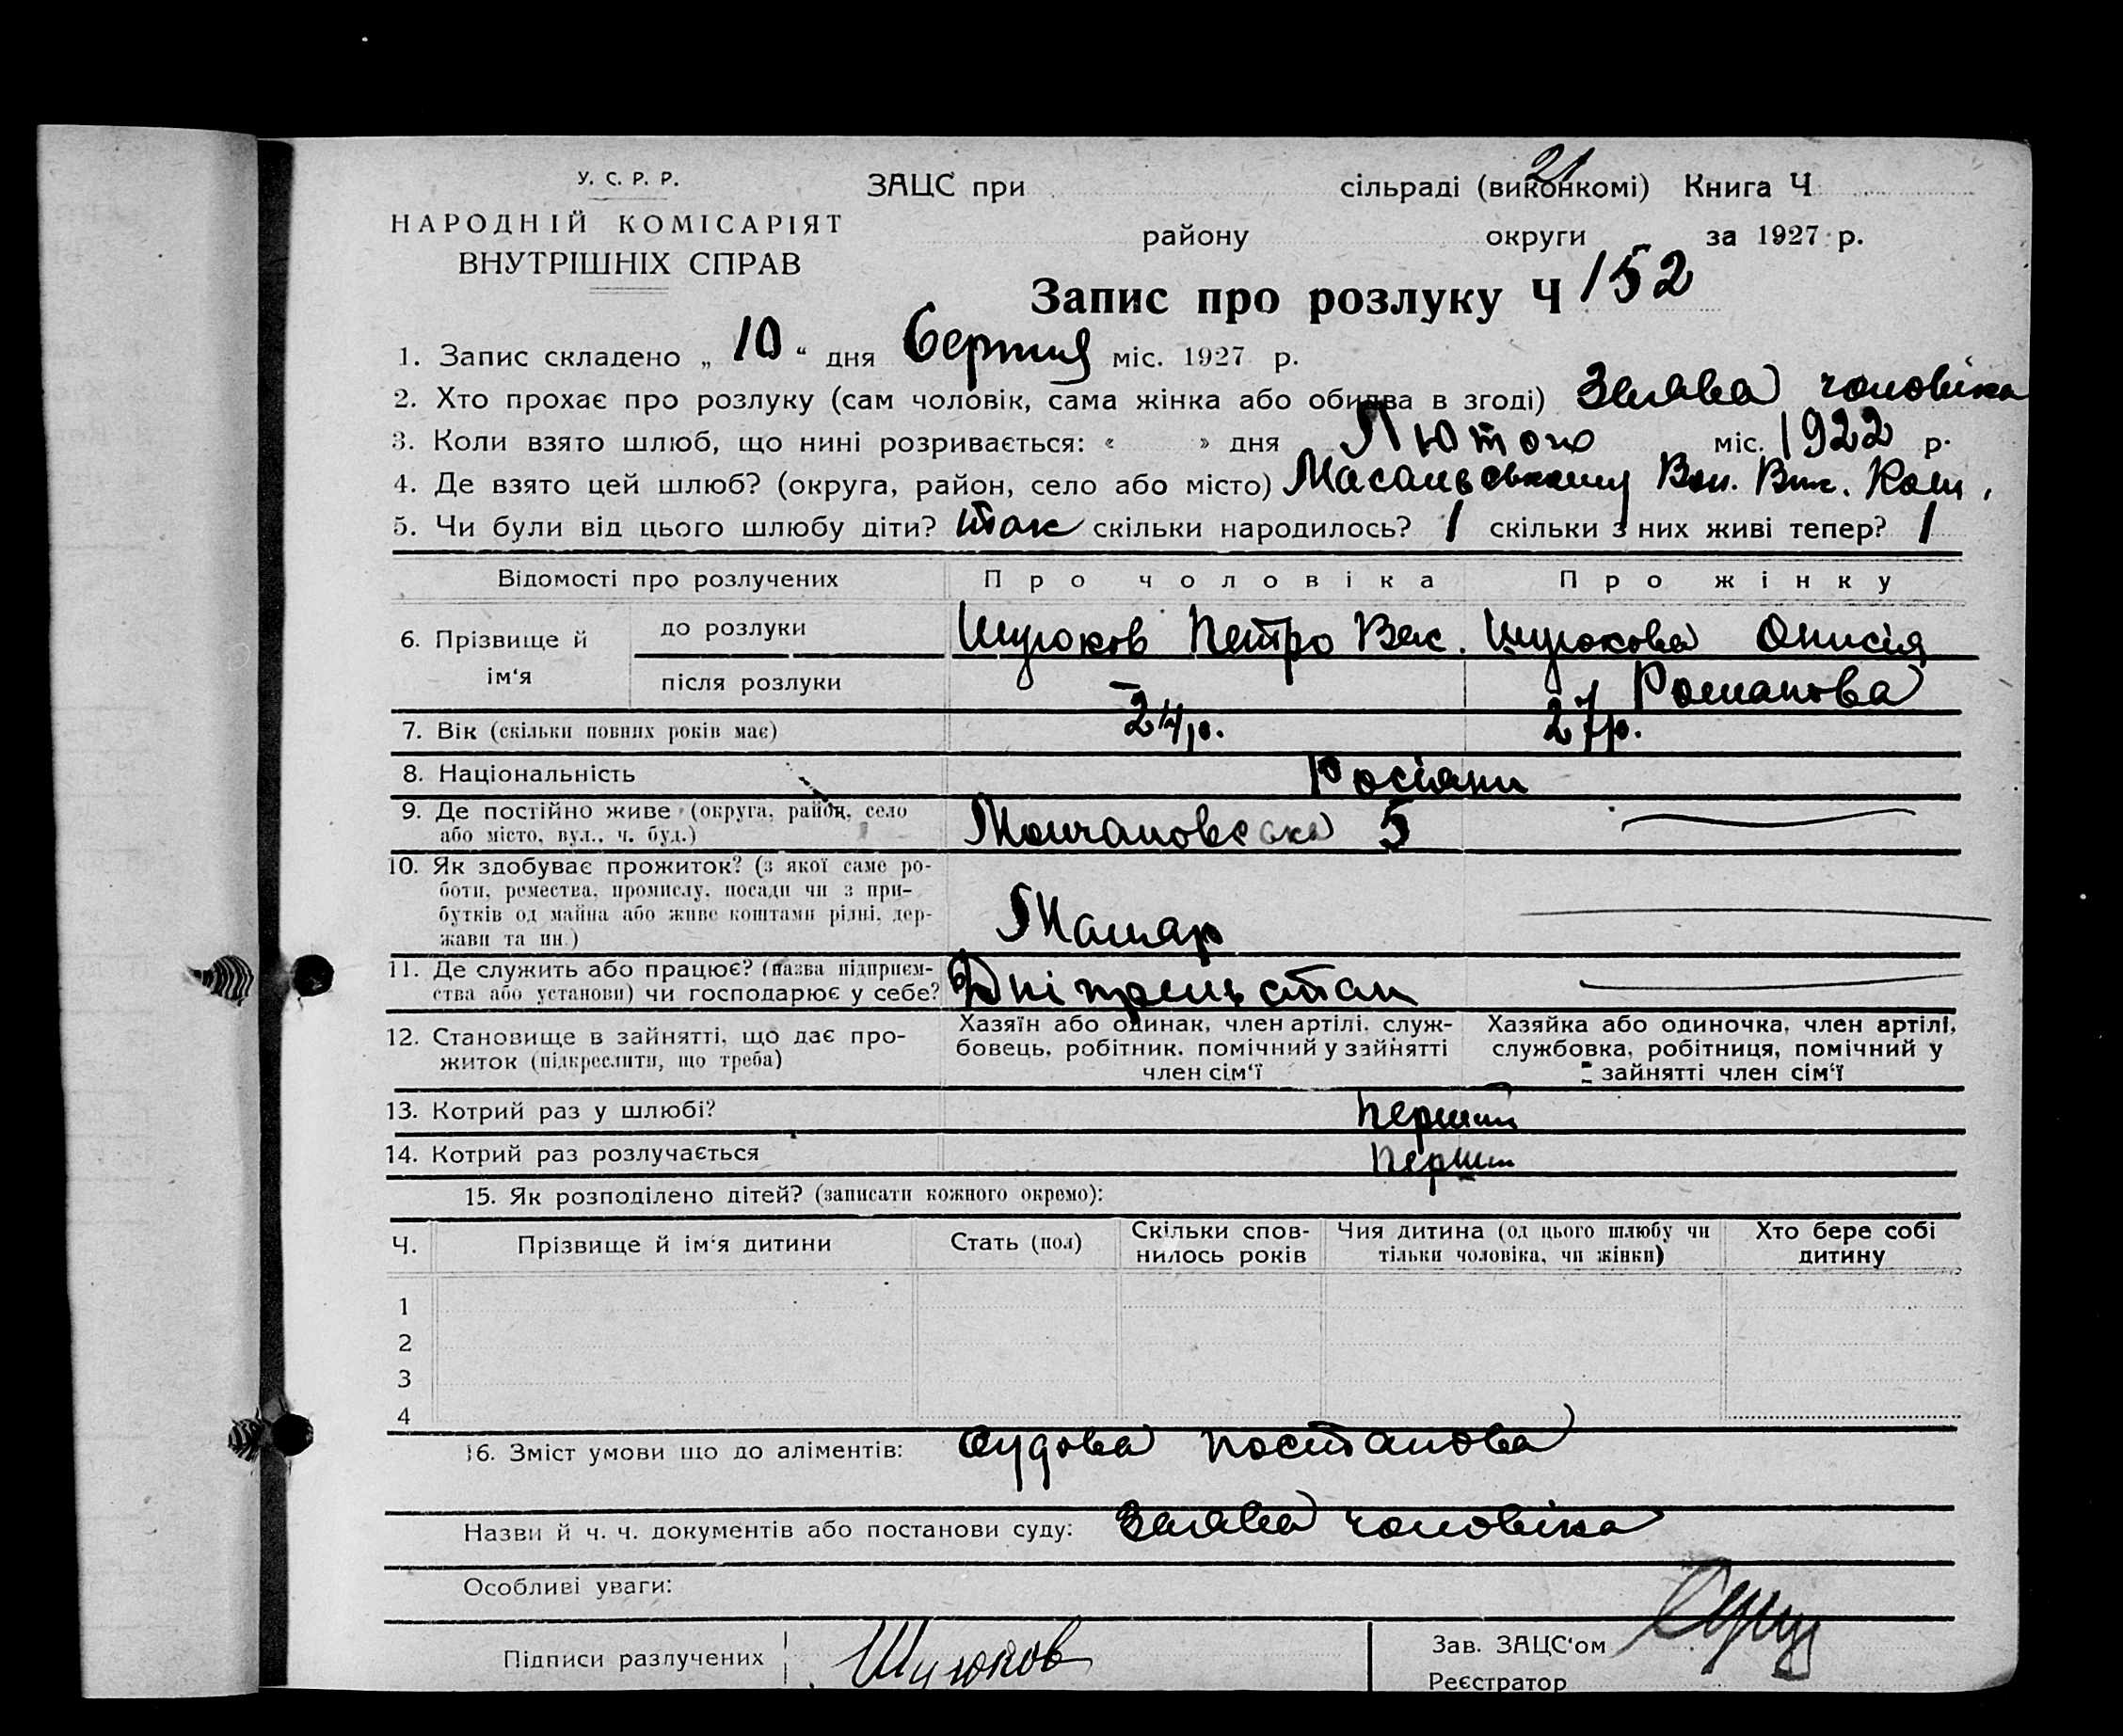 У. С. Р. Р.
НАРОДНІЙ КОМІСАРІЯТ
ВНУТРІШНІХ СПРАВ
ЗАЦС при сільраді (виконкомі) Книга Ч
21
району округи за 1927 р.
Запис про розлуку Ч 152
1. Запис складено „ 10 “ дня Серпня міс. 1927 р.
2. Хто прохає про розлуку (сам чоловік, сама жінка або обидва в згоді) Заява чоловіка
3. Коли взято шлюб, що нині розривається: « » дня Лютого міс. 1922 р.
4. Де взято цей шлюб? (округа, район, село або місто) Вол. Вик. Ком.
5. Чи були від цього шлюбу діти? так скільки народилось? 1 скільки з них живі тепер? 1
Відомості про розлучених Про чоловіка Про жінку
6. Прізвище й ім‘я
до розлуки Шугюков Петро Вас. Шугюкова Онисія
після розлуки — Романова
7. Вік (скільки повних років має) 24 р. 27 р.
8. Національність Росіяни
9. Де постійно живе (округа, район, село
або місто, вул., ч. буд.) 5
10. Як здобуває прожиток? (з якої саме ро-
боти, ремества, промислу, посади чи з при-
бутків од майна або живе коштами рідні, дер-
жави та ин.) Маляр
11. Де служить або працює? (назва підприєм-
ства або установи) чи господарює у себе? Дніпрельстан
12. Становище в зайнятті, що дає про-
житок (підкреслити, що треба)
Хазяїн або одинак, член артілі, служ-
бовець, робітник, помічний у зайнятті
член сім‘ї
Хазяйка або одиночка, член артілі,
службовка, робітниця, помічний у
зайнятті член сім‘ї
13. Котрий раз у шлюбі? перший
14. Котрий раз розлучається перший
15. Як розподілено дітей? (записати кожного окремо):
Ч. Прізвище й ім‘я дитини Стать (пол) Скільки спов-
нилось років Чия дитина (од цього шлюбу чи
тільки чоловіка, чи жінки) Хто бере собі
дитину
1
2
3
4
16. Зміст умови що до аліментів: Судова постанова
Назви й ч. ч. документів або постанови суду: Заява чоловіка
Особливі уваги:
Підписи разлучених Шугюков
Зав. ЗАЦС‘ом
Реєстратор